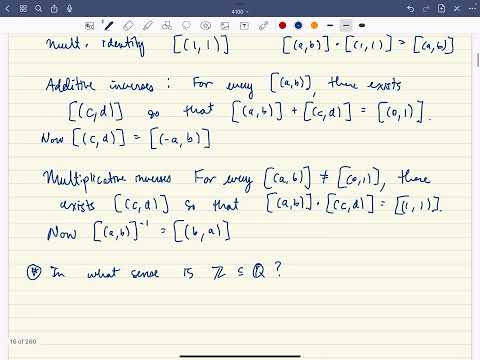 4100
mult. identity [(1,1)] [(a,b)]·[(1,1)] = [(a,b)]
Additive inverses : For every [(a,b)], there exists
[(c,d)] so that [(a,b)] + [(c,d)] = [(0,1)].
Now [(c,d)] = [(-a,b)]
Multiplicative inverses For every [(a,b)] ≠ [(0,1)], there
exists [(c,d)] so that [(a,b)]·[(c,d)] = [(1,1)].
Now [(a,b)]⁻¹ = [(b,a)]
In what sense is ℤ ⊆ ℚ ?
16 of 260